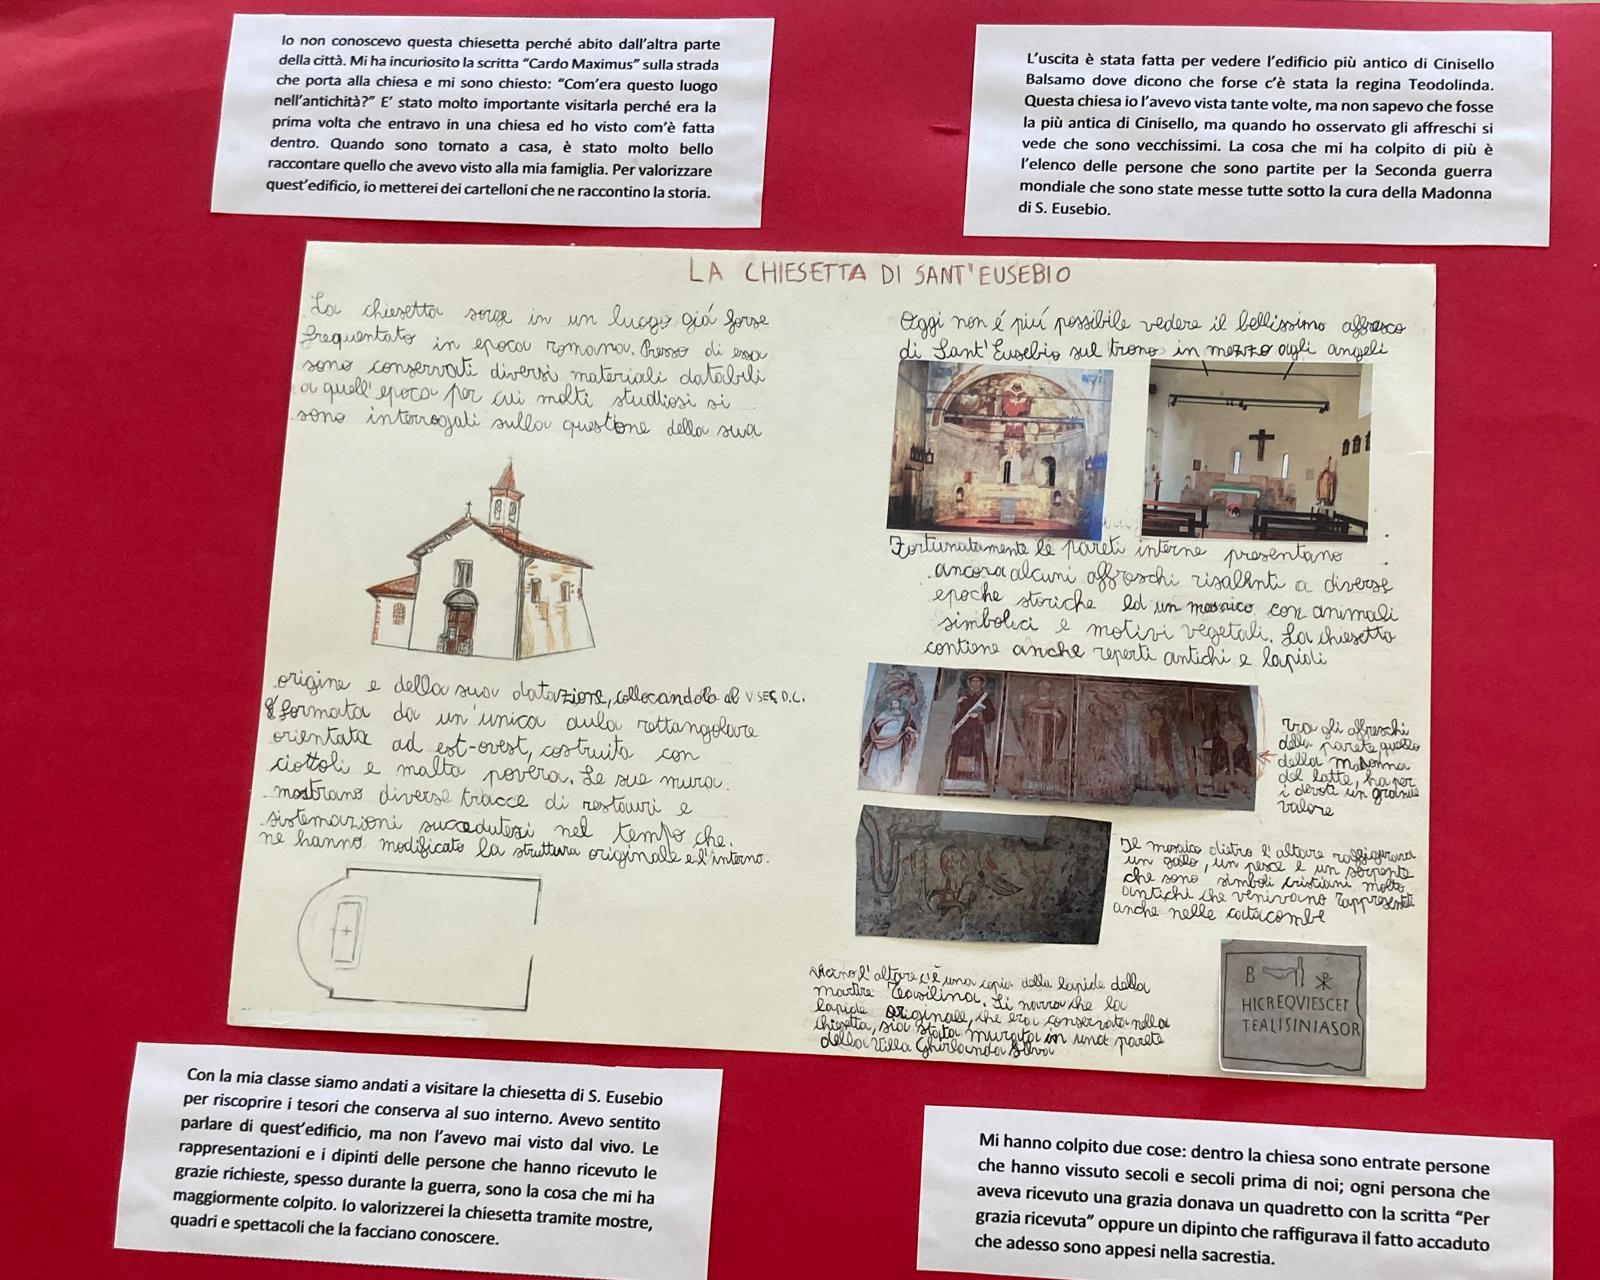 Io non conoscevo questa chiesetta perché abito dall'altra parte
della città. Mi ha incuriosito la scritta "Cardo Maximus" sulla strada
che porta alla chiesa e mi sono chiesto: "Com'era questo luogo
nell'antichità?" E' stato molto importante visitarla perché era la
prima volta che entravo in una chiesa ed ho visto com'è fatta
dentro. Quando sono tornato a casa, è stato molto bello
raccontare quello che avevo visto alla mia famiglia. Per valorizzare
quest'edificio, io metterei dei cartelloni che ne raccontino la storia.
L'uscita è stata fatta per vedere l'edificio più antico di Cinisello
Balsamo dove dicono che forse c'è stata la regina Teodolinda.
Questa chiesa io l'avevo vista tante volte, ma non sapevo che fosse
la più antica di Cinisello, ma quando ho osservato gli affreschi si
vede che sono vecchissimi. La cosa che mi ha colpito di più è
l'elenco delle persone che sono partite per la Seconda guerra
mondiale che sono state messe tutte sotto la cura della Madonna
di S. Eusebio.
LA CHIESETTA DI SANT'EUSEBIO
La chiesetta sorge in un luogo giá forse
frequentato in epoca romana. Presso di essa
sono conservati diversi materiali databili
a quell'epoca per cui molti studiosi si
sono interrogati sulla questione della sua
origine e della sua datazione, collocandola al V SEC D.C.
formata da un'unica aula rettangolare
orientata ad est-ovest, costruita con
ciottoli e malta povera. Le sue mura
mostrano diverse tracce di restauri e
sistemazioni succedutesi nel tempo che
ne hanno modificato la struttura originale e l'interno.
Oggi non é piú possibile vedere il bellissimo affresco
di Sant'Eusebio sul trono in mezzo agli angeli
Fortunatamente le pareti interne presentano
ancora alcuni affreschi risalenti a diverse
epoche storiche ed un mosaico con animali
simbolici e motivi vegetali. La chiesetta
contiene anche reperti antichi e lapidi
tra gli affreschi
della parete quello
della madonna
del latte, ha per
i devoti un grande
valore
Il mosaico dietro l'altare raffigurava
un gallo, un pesce e un serpente
che sono simboli cristiani molto
antichi che venivano rappresentati
anche nelle catacombe
Vicino l'altare c'è una copia della lapide della
martire Tasilina. Si narra che la
lapide originale, che era conservata nella
chiesetta, sia stata murata in una parete
della Villa Ghirlanda Silva
B
HICREQVIESCET
TEALISINIASOR
Con la mia classe siamo andati a visitare la chiesetta di S. Eusebio
per riscoprire i tesori che conserva al suo interno. Avevo sentito
parlare di quest'edificio, ma non l'avevo mai visto dal vivo. Le
rappresentazioni e i dipinti delle persone che hanno ricevuto le
grazie richieste, spesso durante la guerra, sono la cosa che mi ha
maggiormente colpito. Io valorizzerei la chiesetta tramite mostre,
quadri e spettacoli che la facciano conoscere.
Mi hanno colpito due cose: dentro la chiesa sono entrate persone
che hanno vissuto secoli e secoli prima di noi; ogni persona che
aveva ricevuto una grazia donava un quadretto con la scritta "Per
grazia ricevuta" oppure un dipinto che raffigurava il fatto accaduto
che adesso sono appesi nella sacrestia.